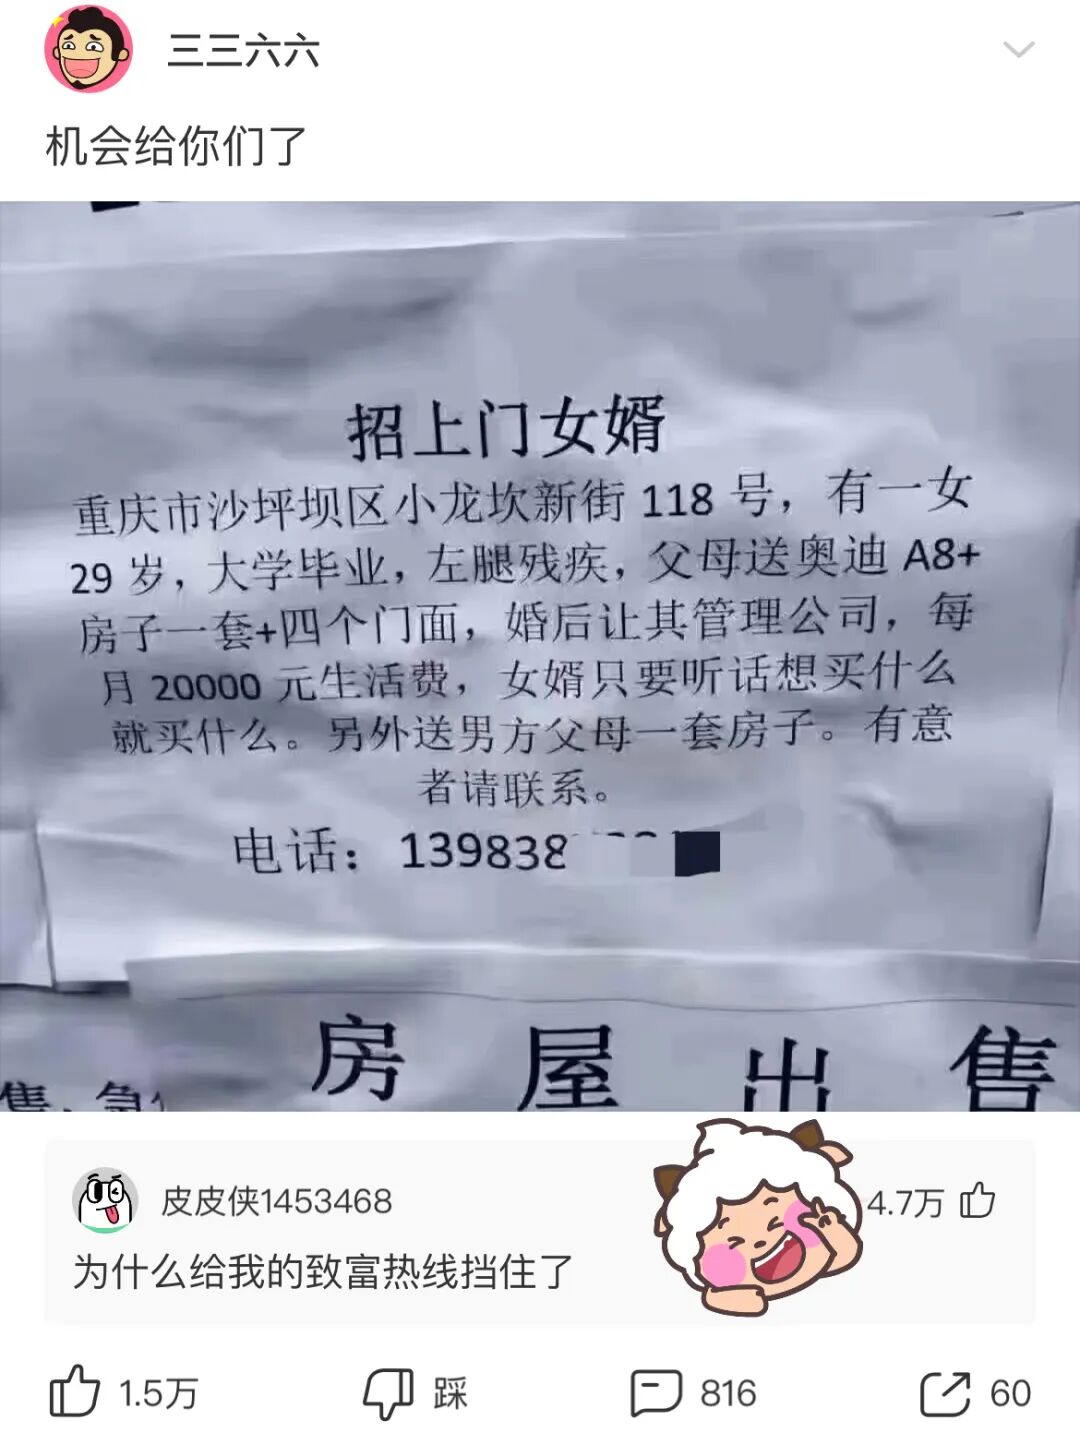 三三六六
机会给你们了
招上门女婿
重庆市沙坪坝区小龙坎新街 118 号，有一女
29 岁，大学毕业，左腿残疾，父母送奥迪 A8+
房子一套+四个门面，婚后让其管理公司，每
月 20000 元生活费，女婿只要听话想买什么
就买什么。另外送男方父母一套房子。有意
者请联系。
电话：139838
房屋出售
皮皮侠1453468
4.7万
为什么给我的致富热线挡住了
1.5万
踩
816
60